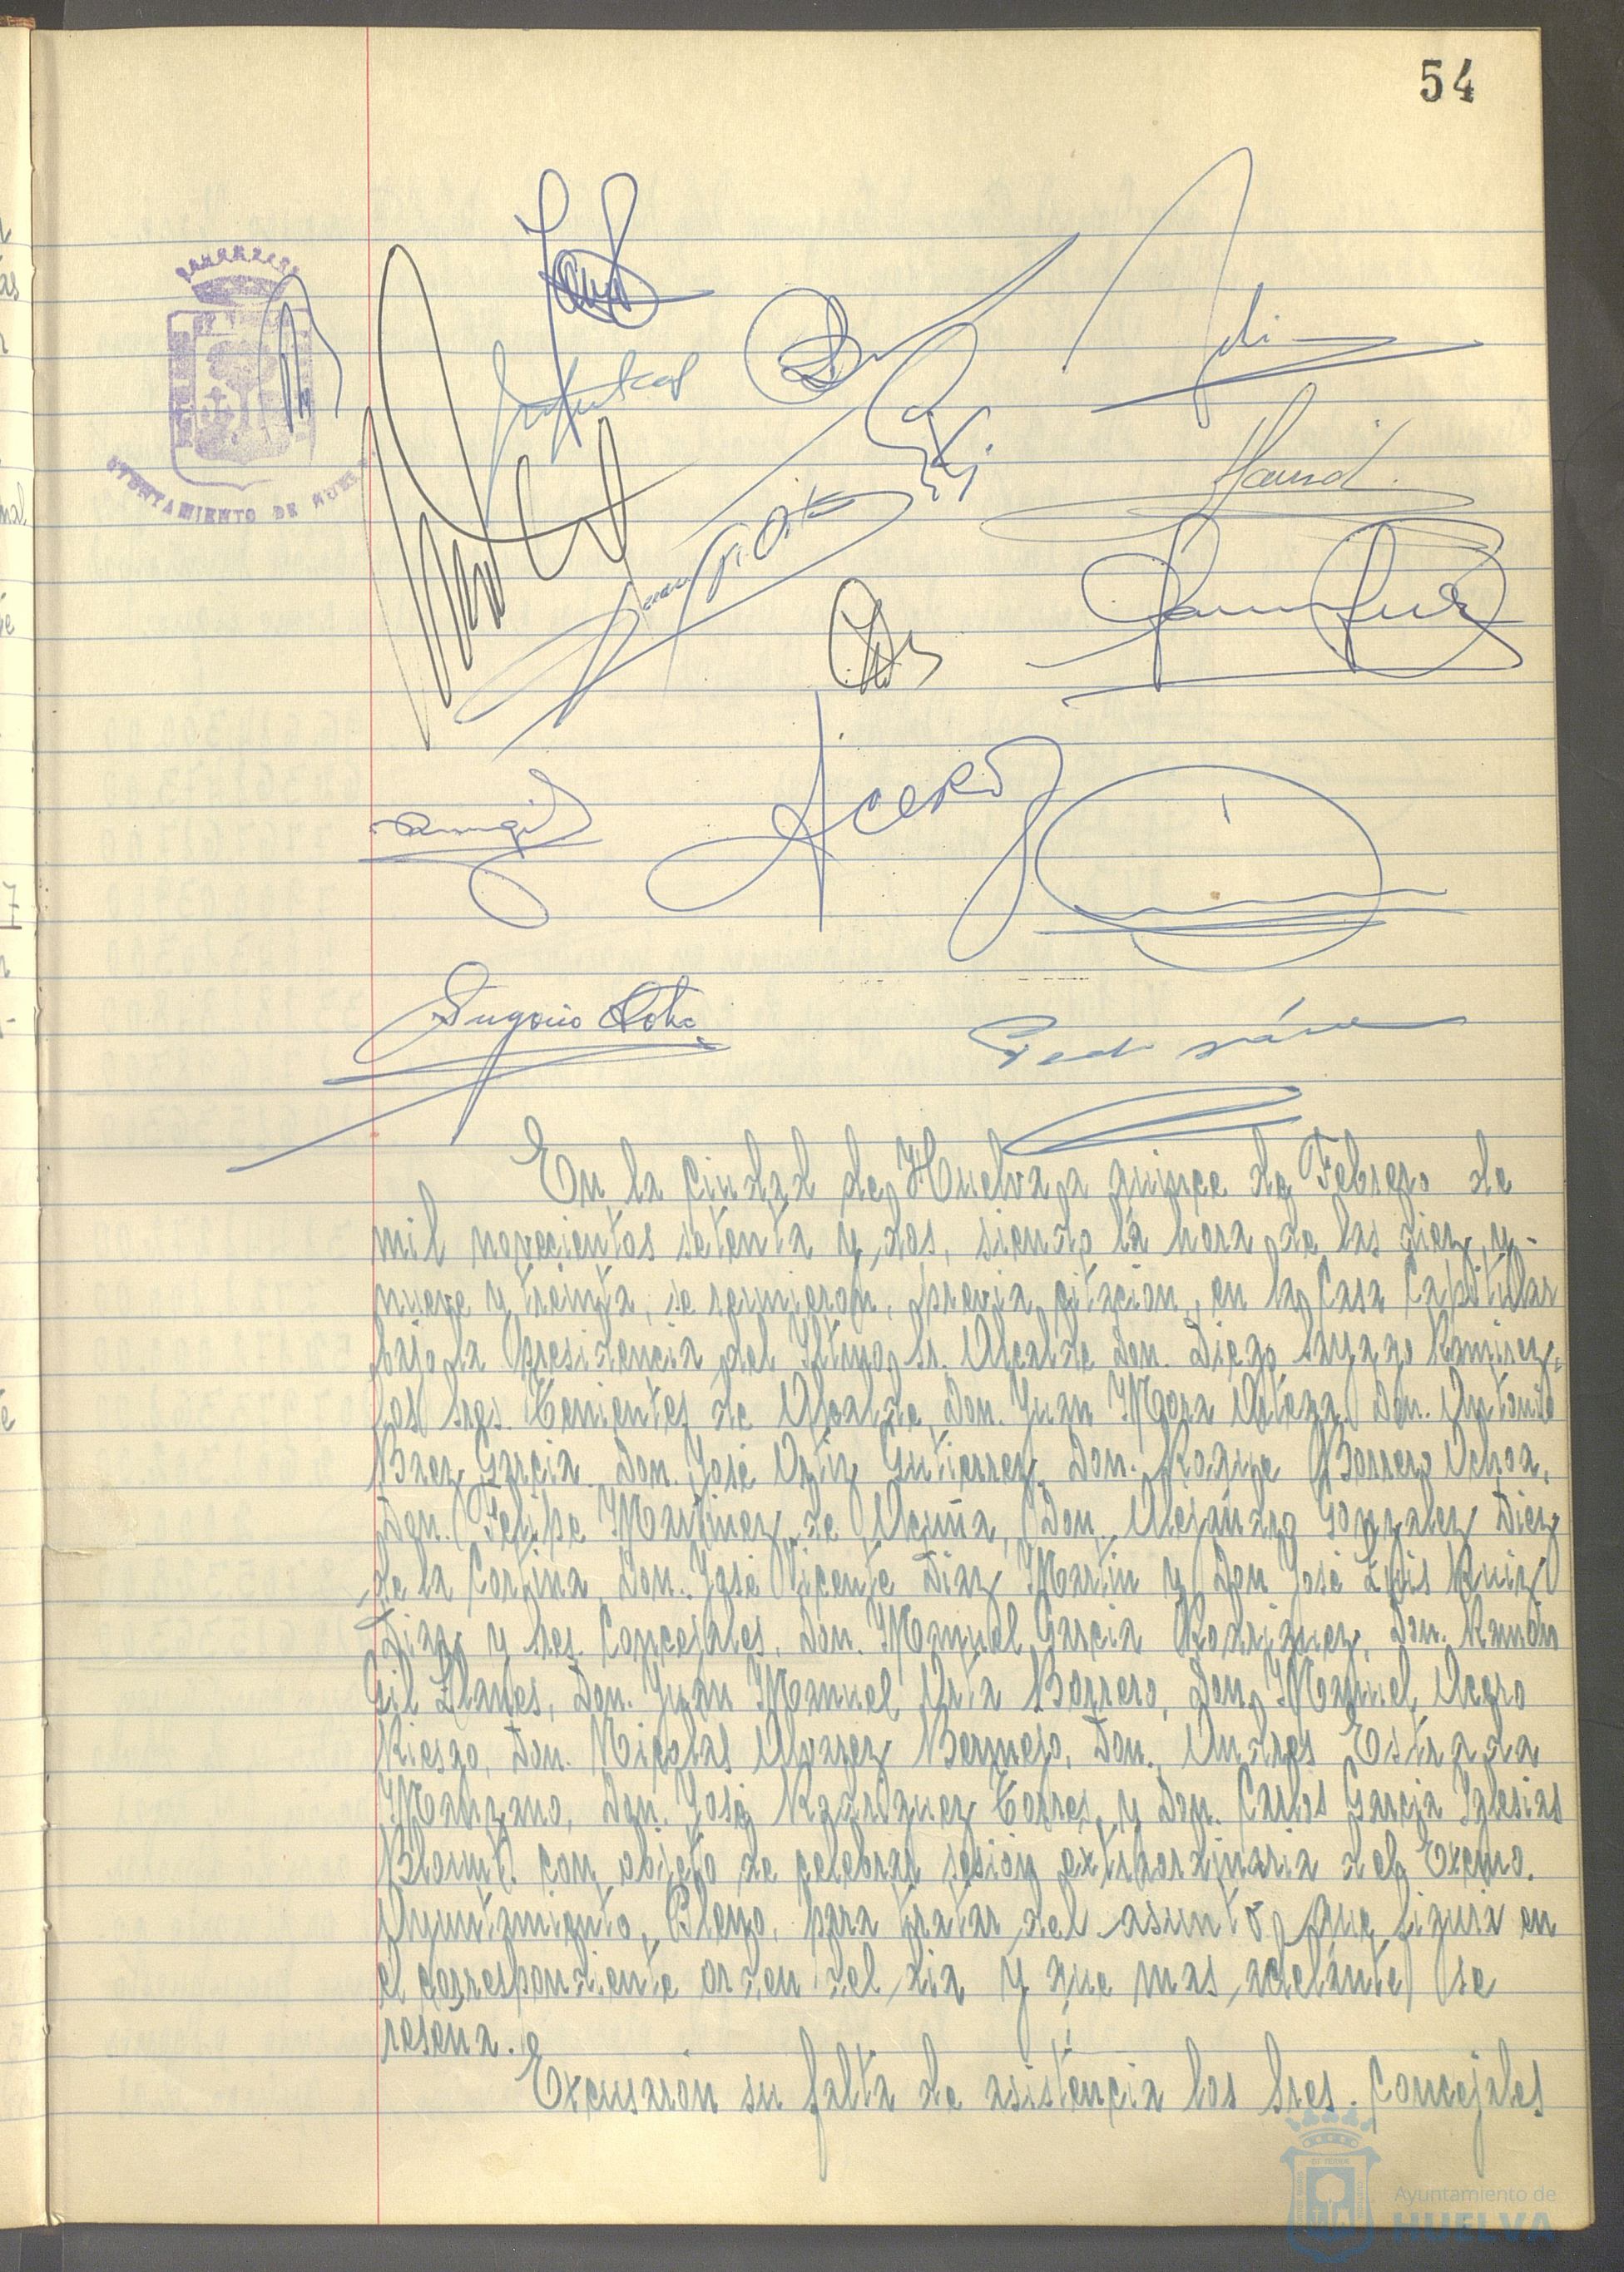 54
AYUNTAMIENTO DE HUELVA
Acero
Eugenio
En la ciudad de Huelva a quince de Febrero de
mil novecientos setenta y dos, siendo la hora de las diez y
nueve y treinta, se reunieron, previa citación, en la Casa Capitular
bajo la Presidencia del Iltmo. Sr. Alcalde Don. Diego Sayago Ramirez,
los Sres. Tenientes de Alcalde, Don. Juan Mora Don. Antonio
Baez Garcia, Don. José Ortiz Gutierrez, Don. Roque Borrero Ochoa,
Don. Felipe Martinez de Acuña, Don. Alejandro Gonzalez Diez
de la Cortina, Don. José Vicente Diaz Martin y Don José Luis Ruiz
Diaz y Sres. Concejales, Don. Manuel Garcia Rodriguez, Don. Ramón
Gil Llanes, Don. Juan Manuel Orta Borrero, Don. Manuel Acero
Riesgo, Don. Nicolas Alvarez Bermejo, Don. Andres Estrada
Manzano, Don. José Rodriguez Torres, y Don. Carlos Garcia Iglesias
con objeto de celebrar sesión extraordinaria del Excmo.
Ayuntamiento, Pleno, para tratar del asunto que figura en
el correspondiente orden del dia y que mas adelante se
reseña.
Excusaron su falta de asistencia los Sres. Concejales
Ayuntamiento de
HUELVA